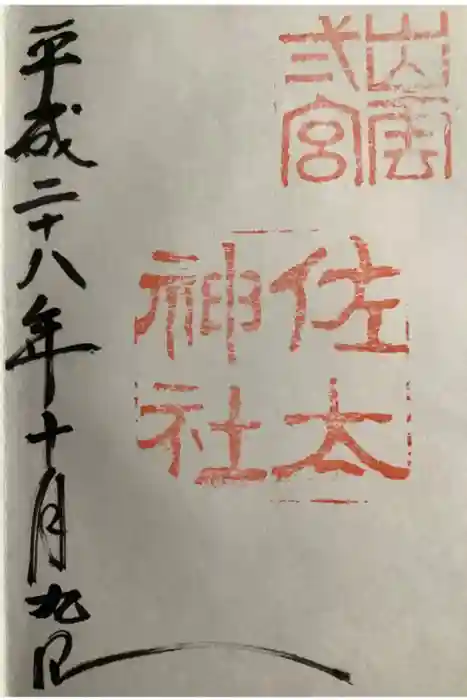 出雲
弍宮
佐太
神社
平成二十八年十月九日